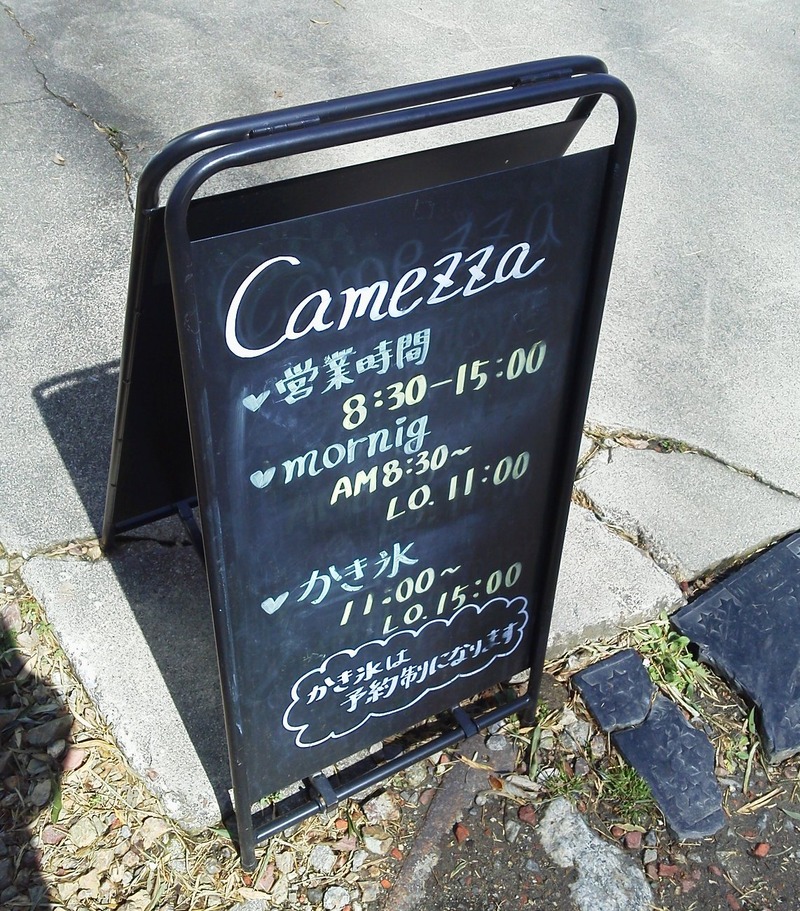 Camezza
営業時間
8:30-15:00
mornig
AM8:30~
LO. 11:00
かき氷
11:00~
LO.15:00
かき氷は
予約制になります